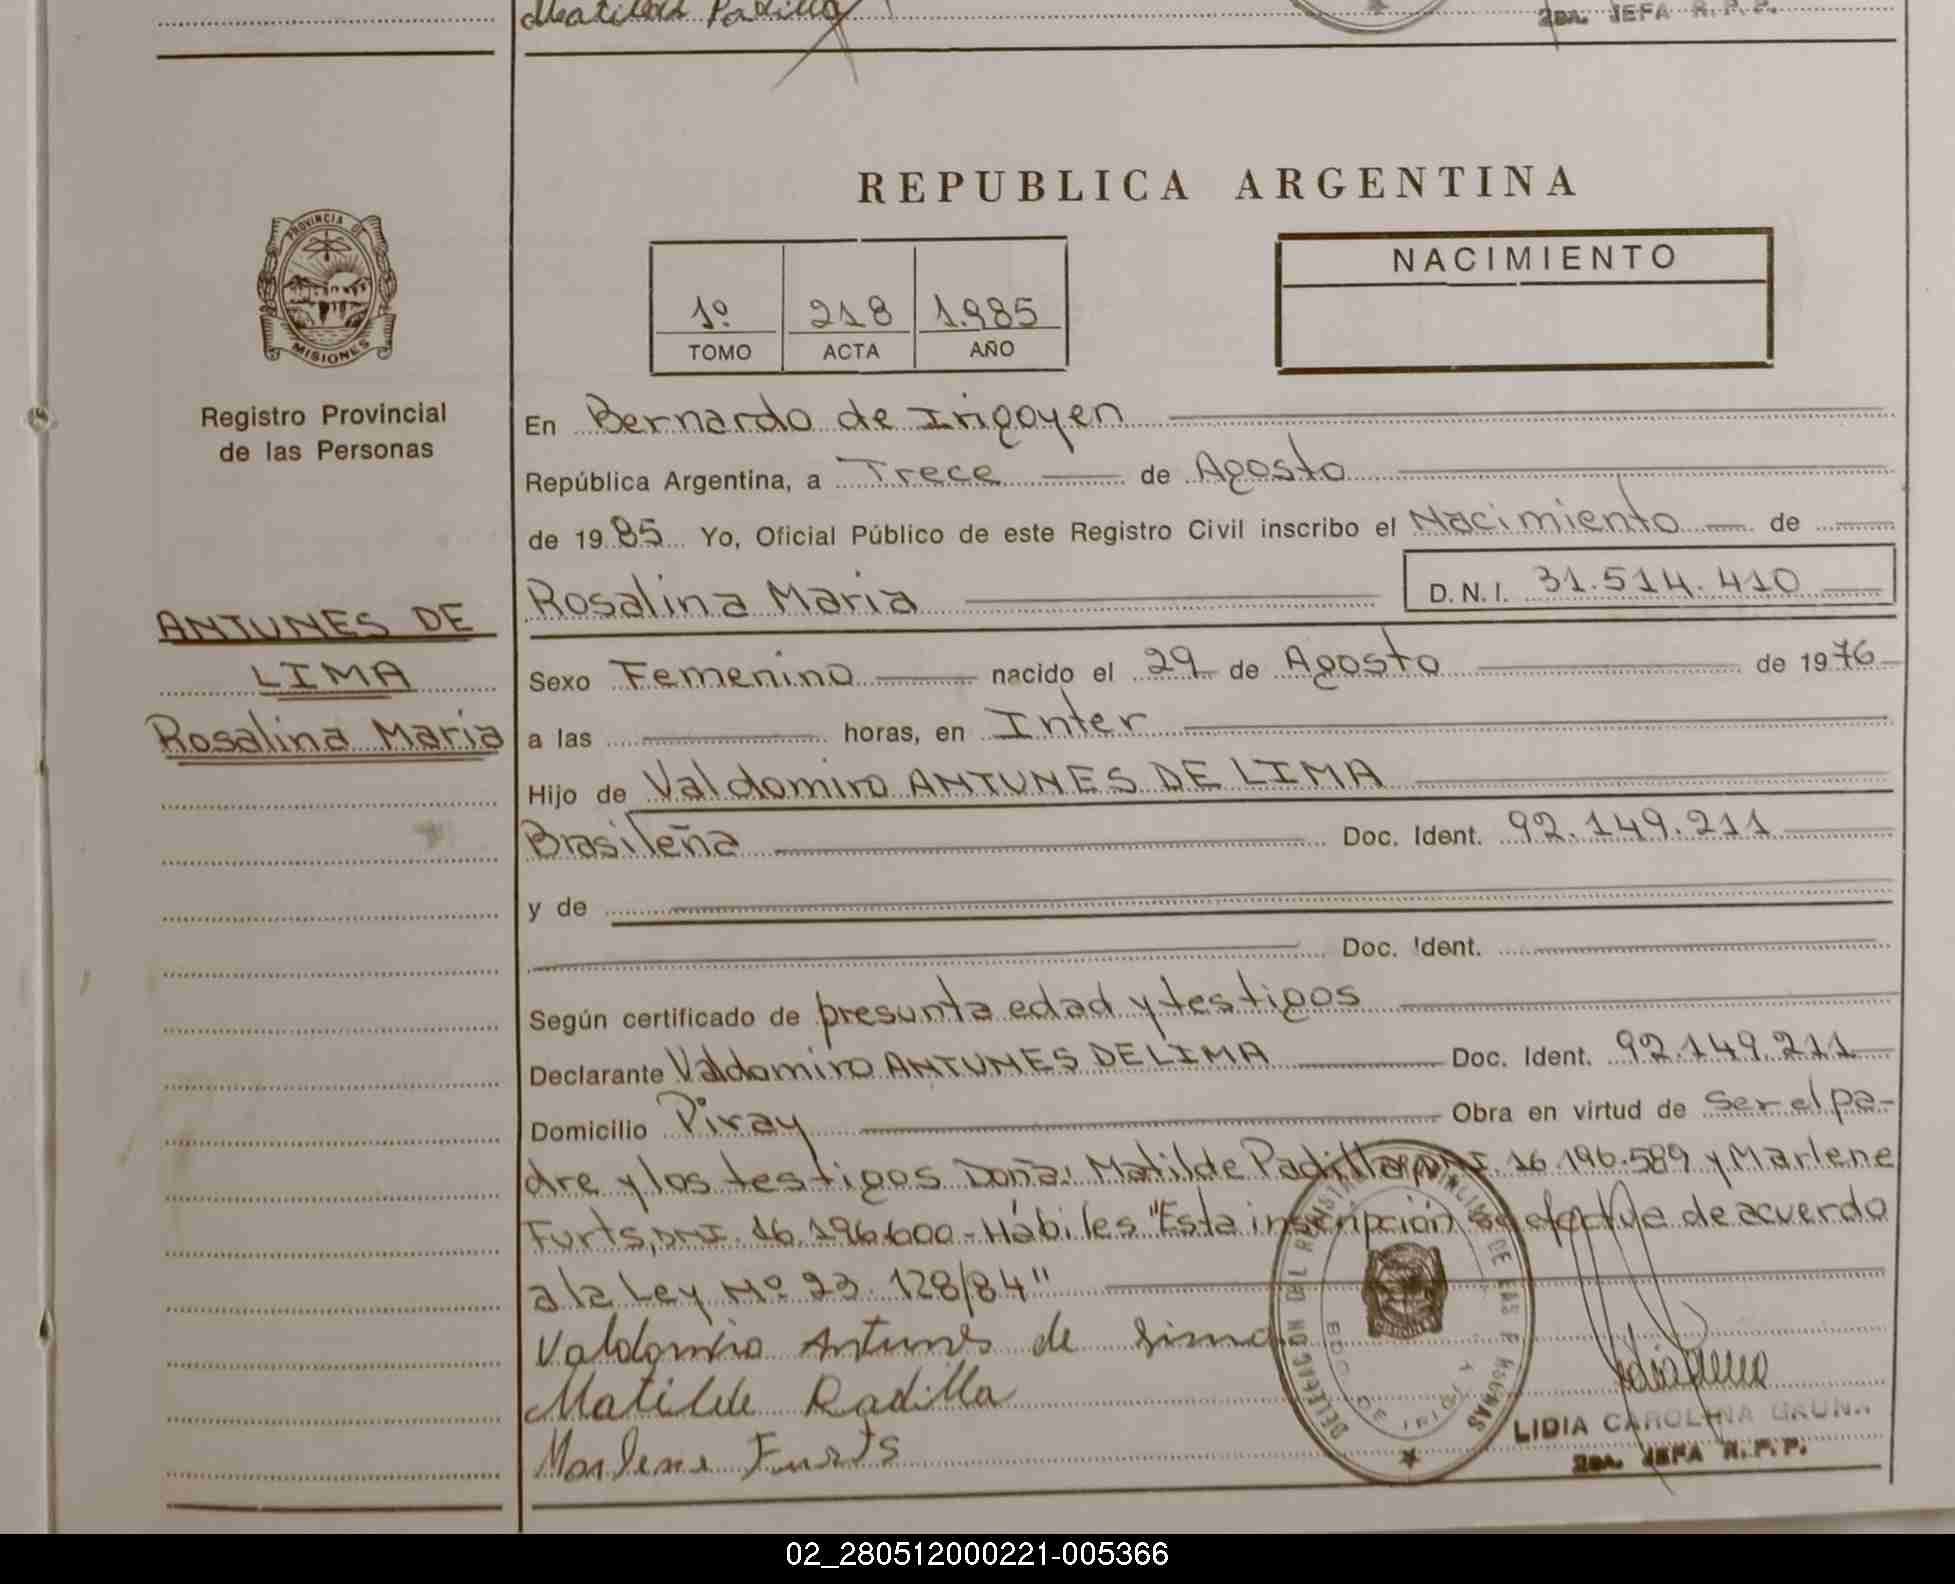 Matilde Padilla
2DA. JEFA R.P.P.
REPUBLICA ARGENTINA
PROVINCIA DE
MISIONES
Registro Provincial
de las Personas
1º 218 1.985
TOMO ACTA AÑO
NACIMIENTO
En Bernardo de Irigoyen
República Argentina, a Trece de Agosto
de 1985 Yo, Oficial Público de este Registro Civil inscribo el Nacimiento de
Rosalina Maria D.N.I. 31.514.410
ANTUNES DE
LIMA
Rosalina Maria
Sexo Femenino nacido el 29 de Agosto de 1976
a las horas, en Inter
Hijo de Valdomiro ANTUNES DE LIMA
Brasileña Doc. Ident. 92.149.211
y de
Doc. Ident.
Según certificado de presunta edad y testigos
Declarante Valdomiro ANTUNES DE LIMA Doc. Ident. 92.149.211
Domicilio Piray Obra en virtud de ser el pa-
dre y los testigos Doña: Matilde Padilla DNI. 16.196.589 y Marlene
Furts, DNI. 16.196.600 - Hábiles "Esta inscripción se efectua de acuerdo
a la Ley Nº 23.128/84"
Valdomiro Antunes de Lima
Matilde Padilla
Marlene Furts
LIDIA CAROLINA GAUNA
2DA. JEFA R.P.P.
02_280512000221-005366